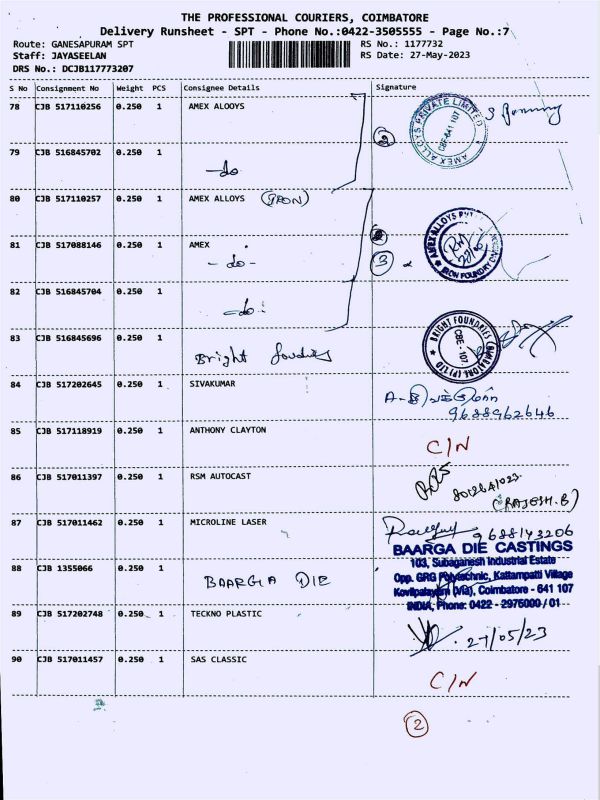 THE PROFESSIONAL COURIERS, COIMBATORE
Delivery Runsheet - SPT - Phone No.:0422-3505555 - Page No.:7
Route: GANESAPURAM SPT
RS No.: 1177732
Staff: JAYASEELAN
RS Date: 27-May-2023
DRS No.: DCJB117773207
S No Consignment No Weight PCS Consignee Details Signature
78 CJB 517110256 0.250 1 AMEX ALOOYS
AMEX ALLOYS PRIVATE LIMITED
CBE-641 107
2
79 CJB 516845702 0.250 1
-do
80 CJB 517110257 0.250 1 AMEX ALLOYS (IRON)
81 CJB 517088146 0.250 1 AMEX
- do -
3
AMEX ALLOYS PVT
IRON FOUNDRY
82 CJB 516845704 0.250 1
-do-
83 CJB 516845696 0.250 1
Bright foundries
BRIGHT FOUNDRIES
CBE - 107
84 CJB 517202645 0.250 1 SIVAKUMAR
9688962646
85 CJB 517118919 0.250 1 ANTHONY CLAYTON
C/N
86 CJB 517011397 0.250 1 RSM AUTOCAST
(RAJESH.B)
87 CJB 517011462 0.250 1 MICROLINE LASER
9688143206
BAARGA DIE CASTINGS
103, Subaganesh Industrial Estate
Opp. GRG Polytechnic, Kattampatti Village
Kovilpalayam (Via), Coimbatore - 641 107
INDIA, Phone: 0422 - 2975000 / 01
88 CJB 1355066 0.250 1
BAARGA DIE
89 CJB 517202748 0.250 1 TECKNO PLASTIC
27/05/23
90 CJB 517011457 0.250 1 SAS CLASSIC
C/N
2